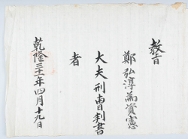 教旨
鄭弘淳爲資憲
大夫刑曹判書
者
乾隆三十一年四月十九日